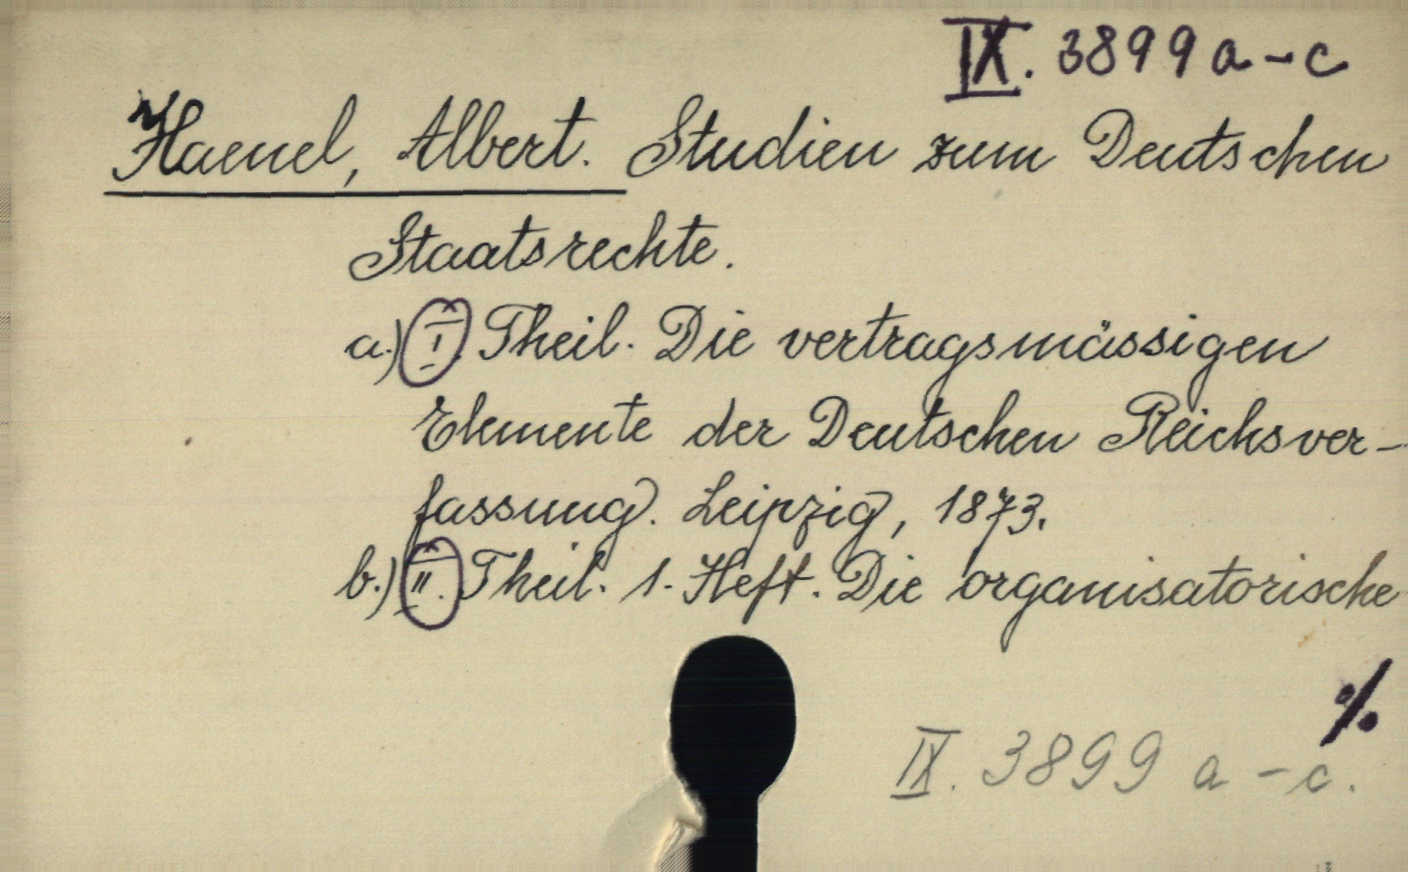 IX. 3899 a-c
Haenel, Albert. Studien zum Deutschen
Staatsrechte.
a.) I. Theil. Die vertragsmässigen
Elemente der Deutschen Reichsver-
fassung. Leipzig, 1873.
b.) II. Theil. 1. Heft. Die organisatorische
%
IX. 3899 a-c.